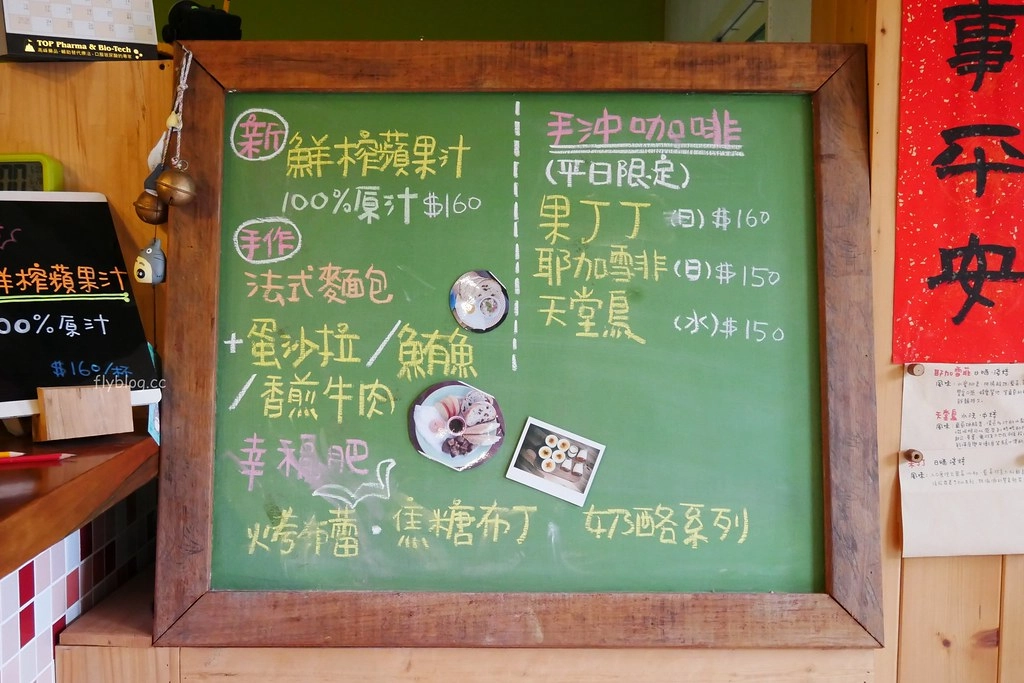 TOP Pharma & Bio-Tech
新
鮮榨蘋果汁
100%原汁 $160
手作
法式麵包
+蛋沙拉/鮪魚
/香煎牛肉
幸福肥
烤布蕾·焦糖布丁 奶酪系列
手沖咖啡
(平日限定)
果丁丁 (日) $160
耶加雪非 (日) $150
天堂鳥 (水) $150
鮮榨蘋果汁
100%原汁
$160/杯
flyblog.cc
事平安